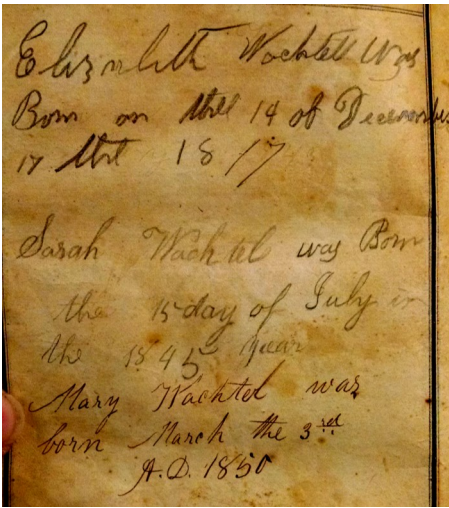 Elizabeth Wachtell Was
Born on the 14 of December
17 the 1817
Sarah Wachtel was Born
the 15 day of July in
the 1845 year
Mary Wachtel was
born March the 3rd
A.D. 1850